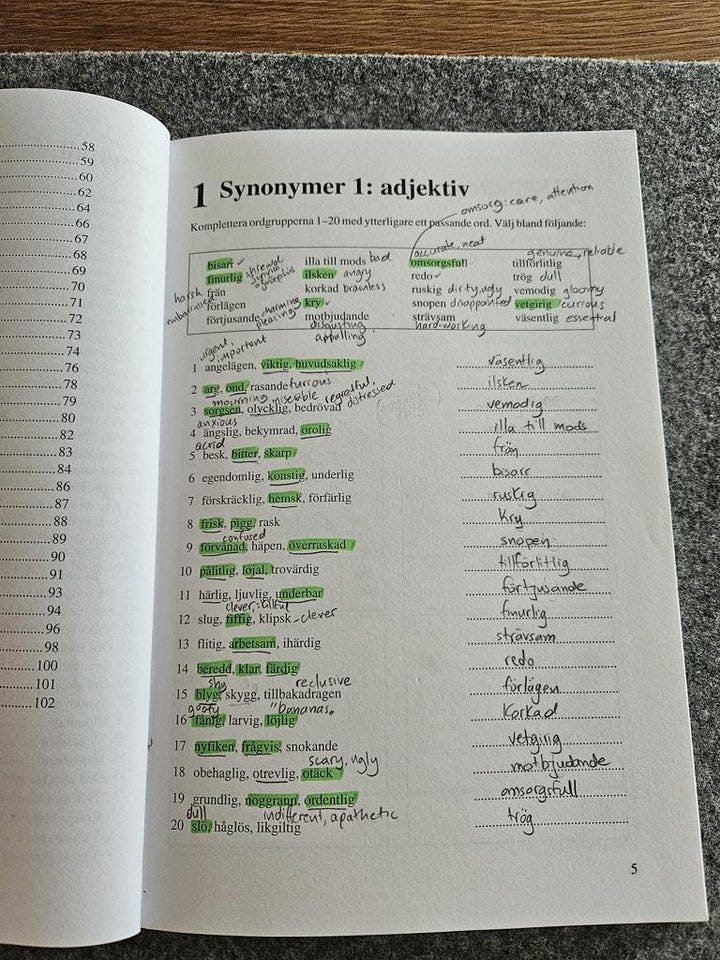 58
59
60
62
64
66
67
68
69
70
71
72
73
74
76
78
79
80
82
83
84
86
87
88
89
90
91
93
94
96
98
100
101
102
1 Synonymer 1: adjektiv
omsorg: care, attention
Komplettera ordgrupperna 1–20 med ytterligare ett passande ord. Välj bland följande:
accurate, neat
genuine, reliable
bisarr ✓ illa till mods bad omsorgsfull tillförlitlig
finurlig shrewd ilsken angry redo ✓ trög dull
harsh från korkad brainless ruskig dirty, ugly vemodig gloomy
embarrassed förlägen kry ✓ snopen disappointed vetgirig curious
förtjusande charming pleasing motbjudande strävsam väsentlig essential
disgusting appalling hard-working
urgent, important
1 angelägen, viktig, huvudsaklig väsentlig
2 arg, ond, rasande furious ilsken
mourning miserable regretful, distressed
3 sorgsen, olycklig, bedrövad vemodig
anxious
4 ängslig, bekymrad, orolig illa till mods
acrid
5 besk, bitter, skarp från
6 egendomlig, konstig, underlig bisarr
7 förskräcklig, hemsk, förfärlig ruskig
8 frisk, pigg, rask kry
confused
9 förvånad, häpen, överraskad snopen
10 pålitlig, lojal, trovärdig tillförlitlig
11 härlig, ljuvlig, underbar förtjusande
clever, skillful
12 slug, fiffig, klipsk - clever finurlig
13 flitig, arbetsam, ihärdig strävsam
14 beredd, klar, färdig redo
shy reclusive
15 blyg, skygg, tillbakadragen förlägen
goofy "bananas"
16 fånig, larvig, löjlig korkad
17 nyfiken, frågvis, snokande vetgirig
scary, ugly
18 obehaglig, otrevlig, otäck motbjudande
19 grundlig, noggrann, ordentlig omsorgsfull
dull indifferent, apathetic
20 slö, håglös, likgiltig trög
5